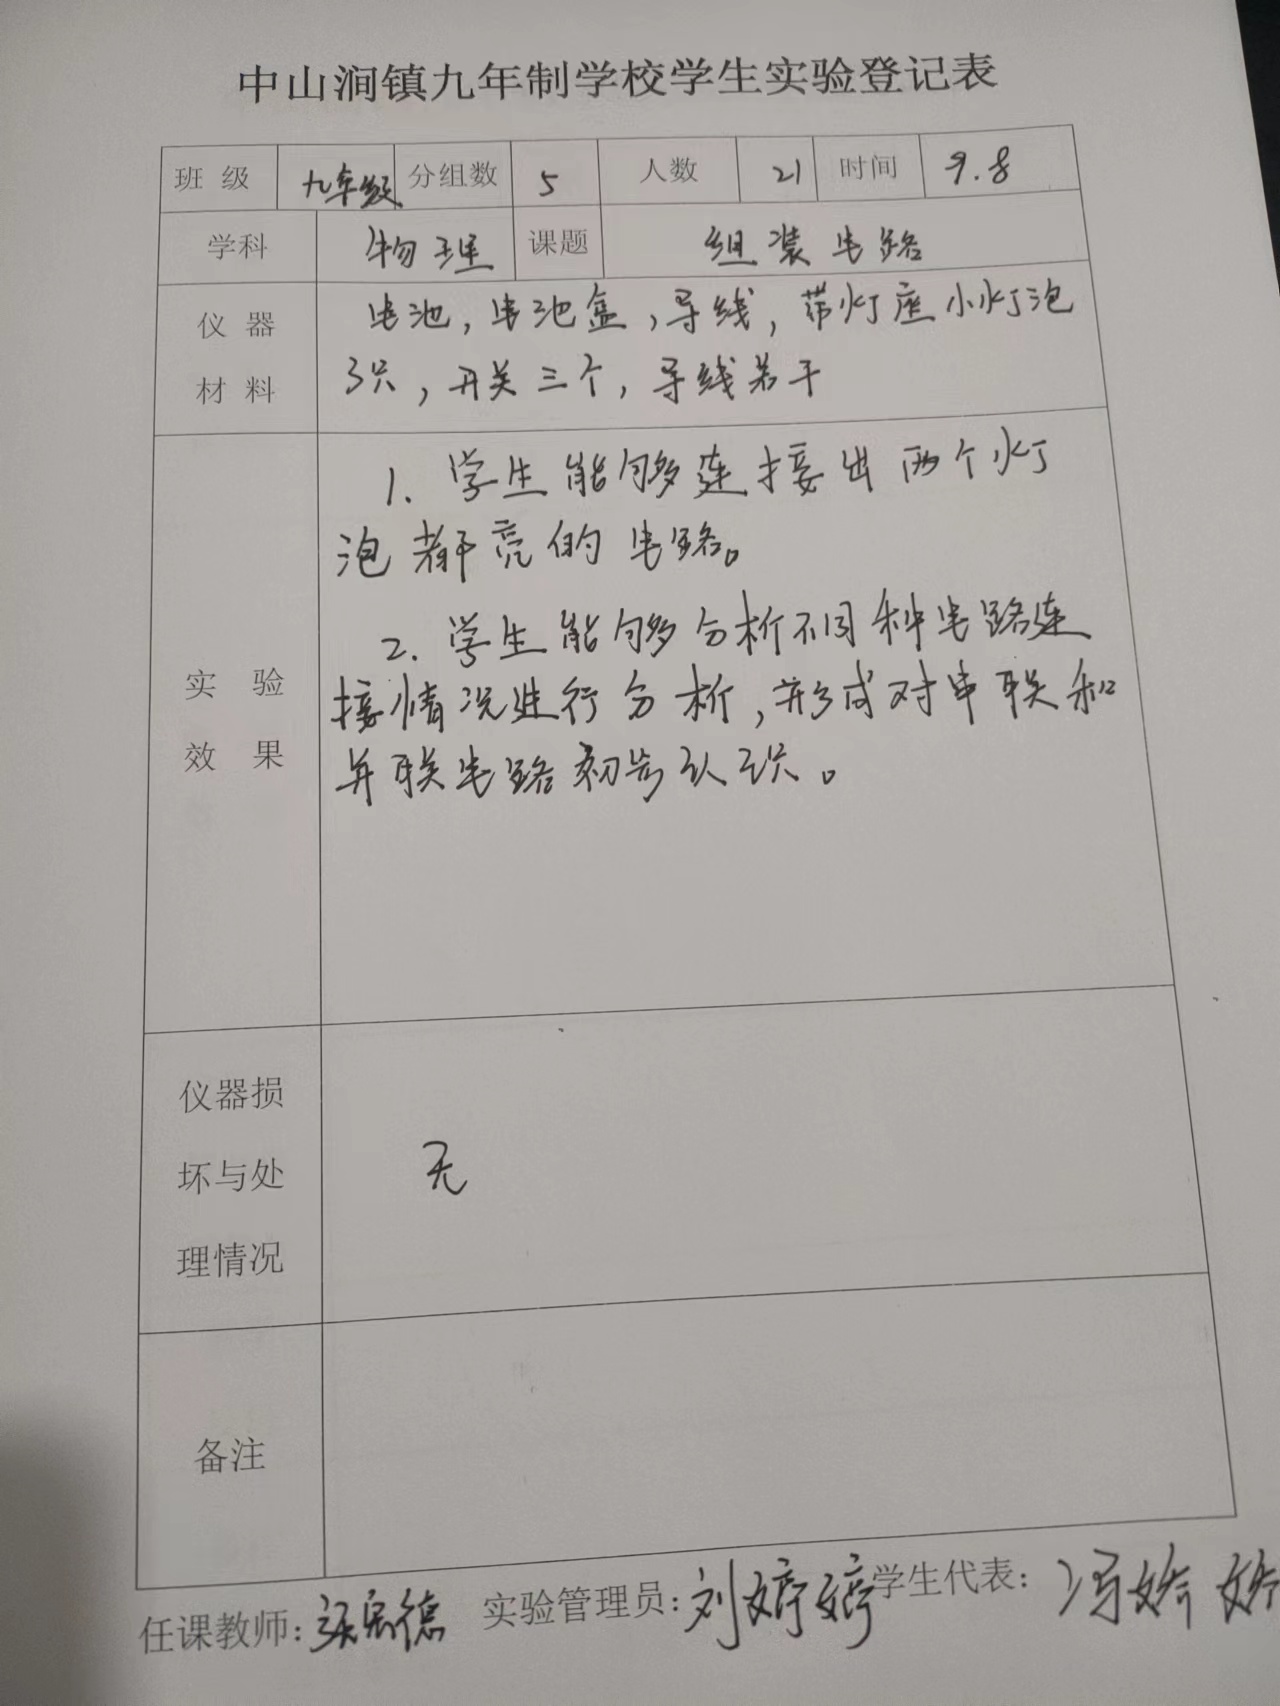 中山涧镇九年制学校学生实验登记表
班 级 九年级 分组数 5 人数 21 时间 9.8
学科 物理 课题 组装电路
仪 器 电池，电池盒，导线，带灯座小灯泡
材 料 3只，开关三个，导线若干
1. 学生能够连接出两个灯
泡都亮的电路。
2. 学生能够分析不同种电路连
实 验 接情况进行分析，形成对串联和
效 果 并联电路初步认识。
仪器损
坏与处 无
理情况
备注
任课教师: 德 实验管理员: 刘婷婷 学生代表: 冯娇娇